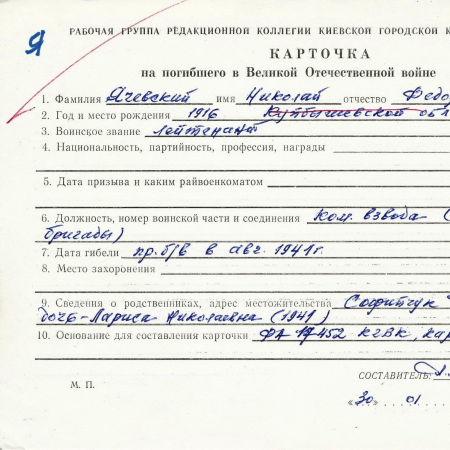 Я
РАБОЧАЯ ГРУППА РЕДАКЦИОННОЙ КОЛЛЕГИИ КИЕВСКОЙ ГОРОДСКОЙ К
КАРТОЧКА
на погибшего в Великой Отечественной войне
1. Фамилия Ячевский имя Николай отчество Федо
2. Год и место рождения 1916 Куйбышевской обл
3. Воинское звание Лейтенант
4. Национальность, партийность, профессия, награды
5. Дата призыва и каким райвоенкоматом
6. Должность, номер воинской части и соединения Ком. взвода (
бригады)
7. Дата гибели пр. б/в в авг. 1941 г
8. Место захоронения
9. Сведения о родственниках, адрес местожительства Софийчук
дочь - Лариса Николаевна (1941)
10. Основание для составления карточки 452 КГВК, кар
СОСТАВИТЕЛЬ:
М. П.
«30» 01